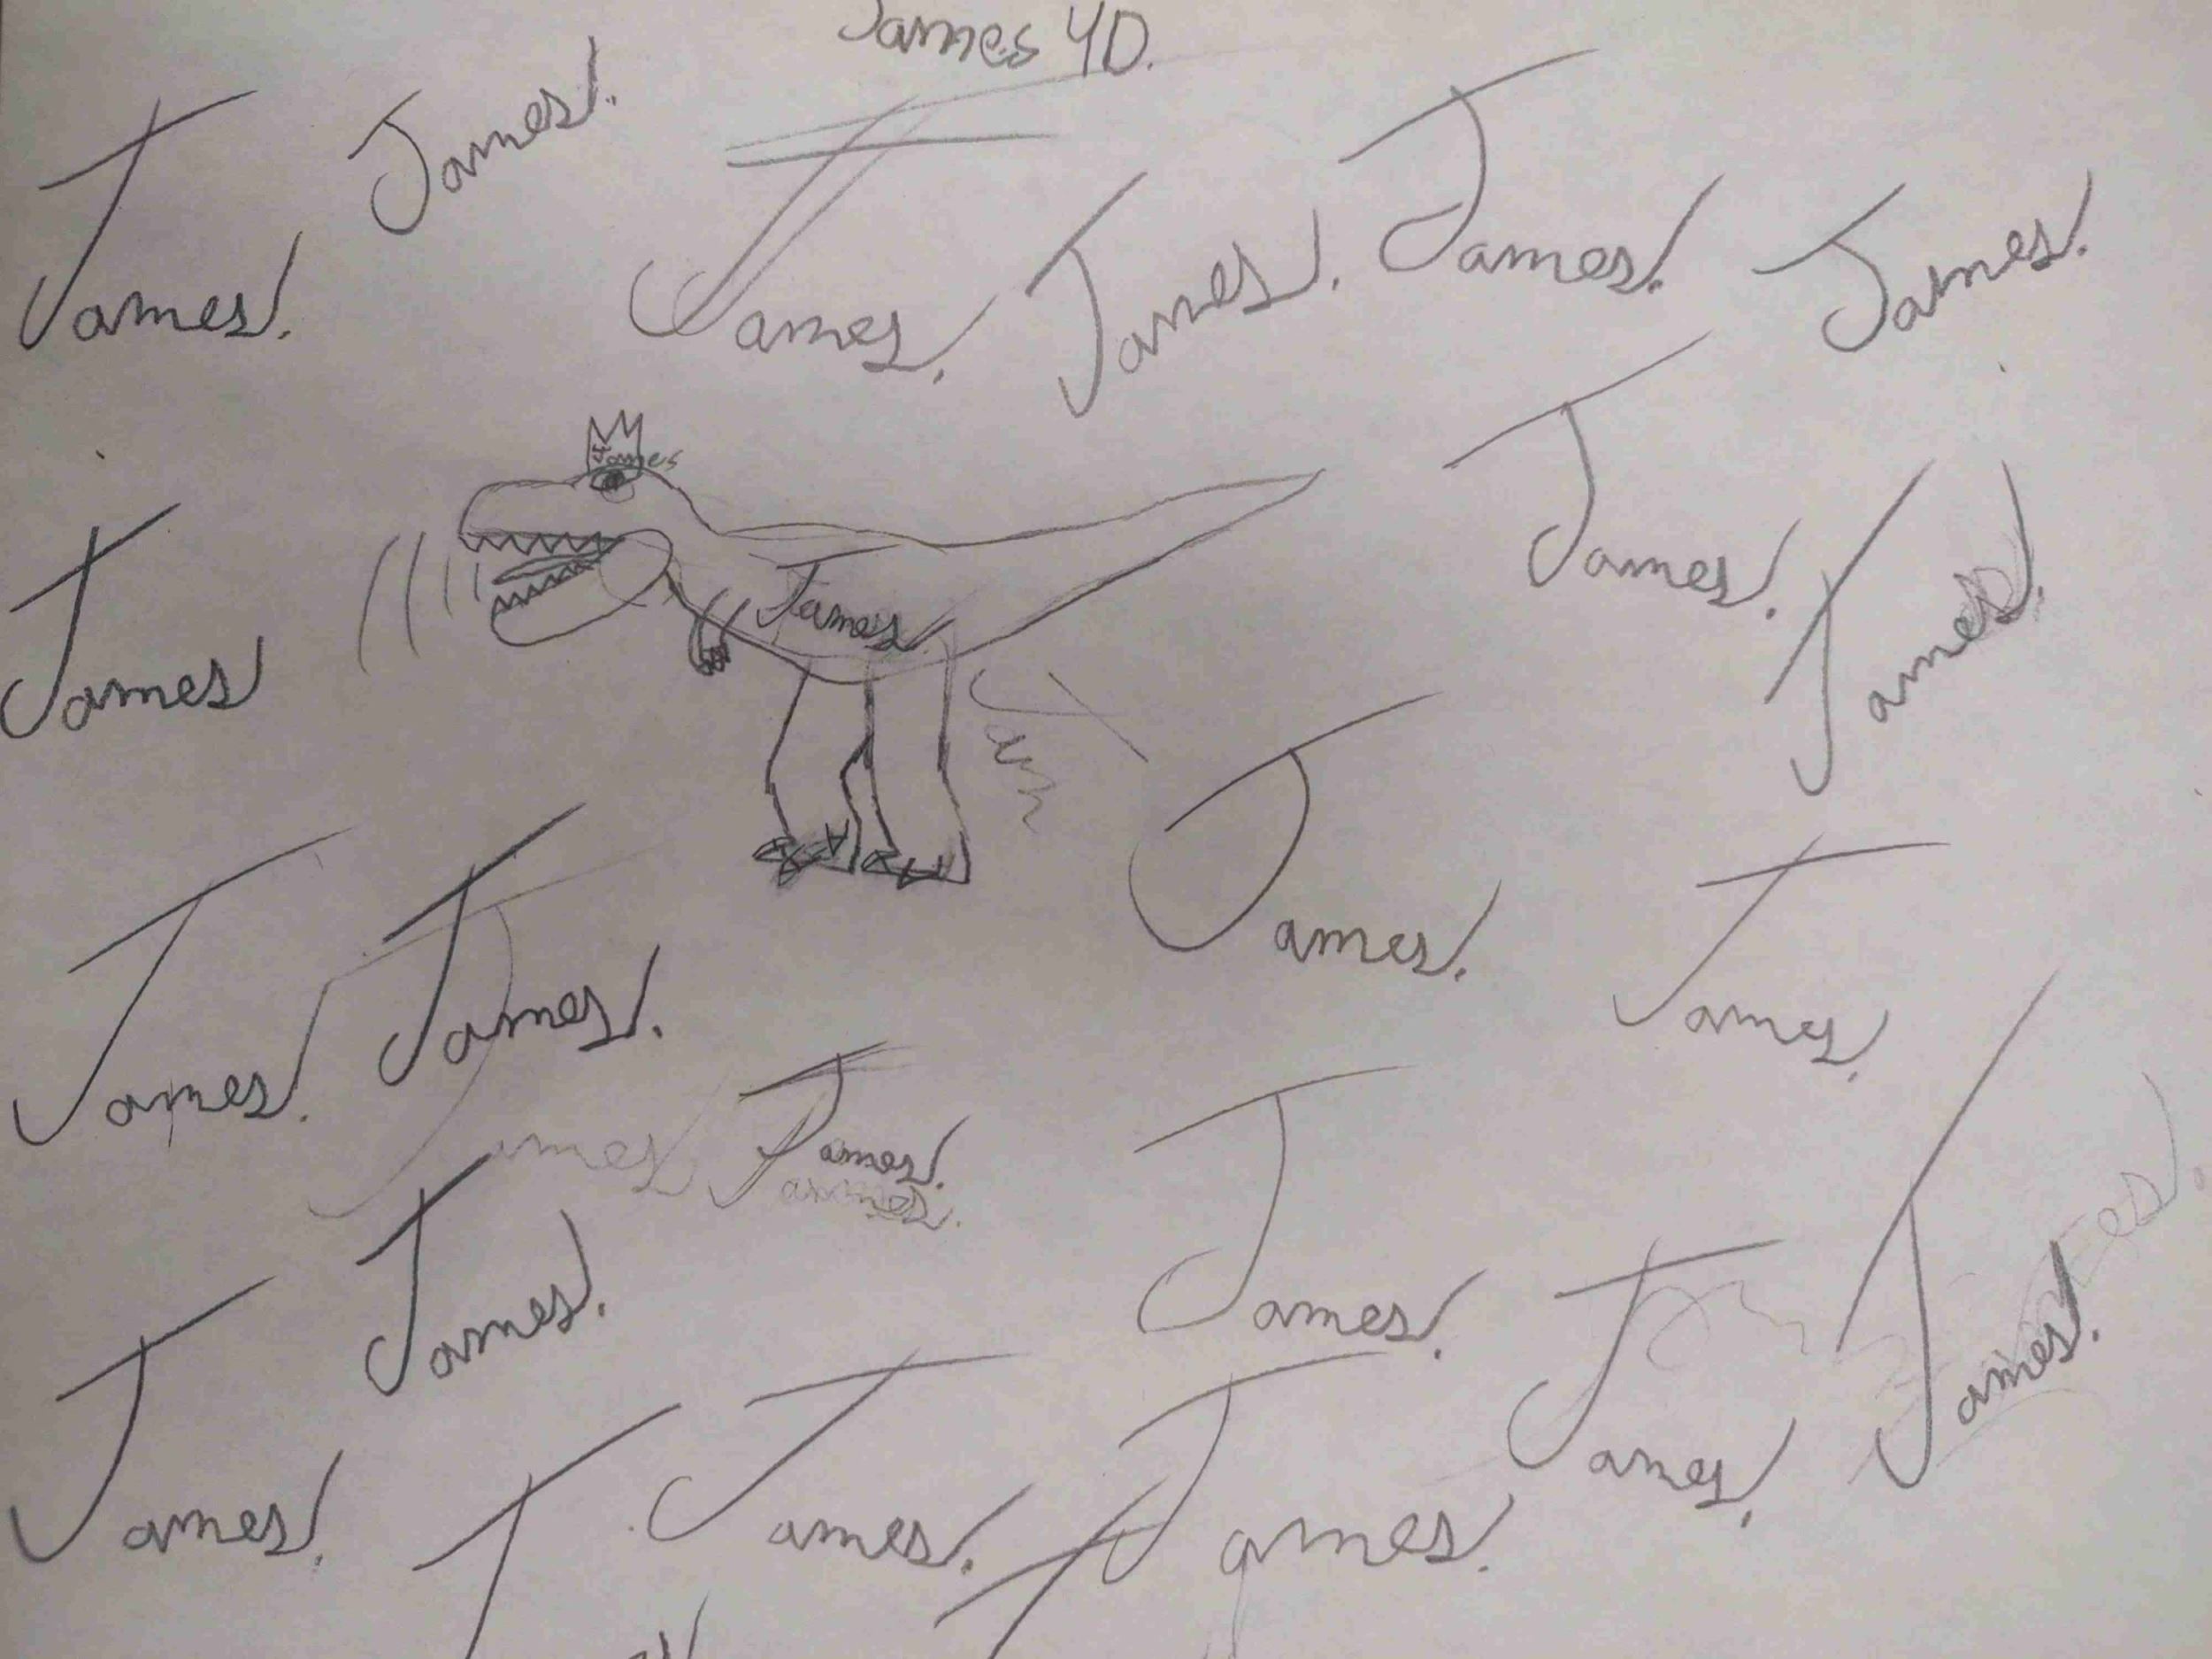 James 4D.
James!
James!
James!
James!
James!
James!
James
James!
James!
James
James!
James!
James!
James!
James!
James
James!
James!
James!
James!
James!
James!
James!
James!
James!